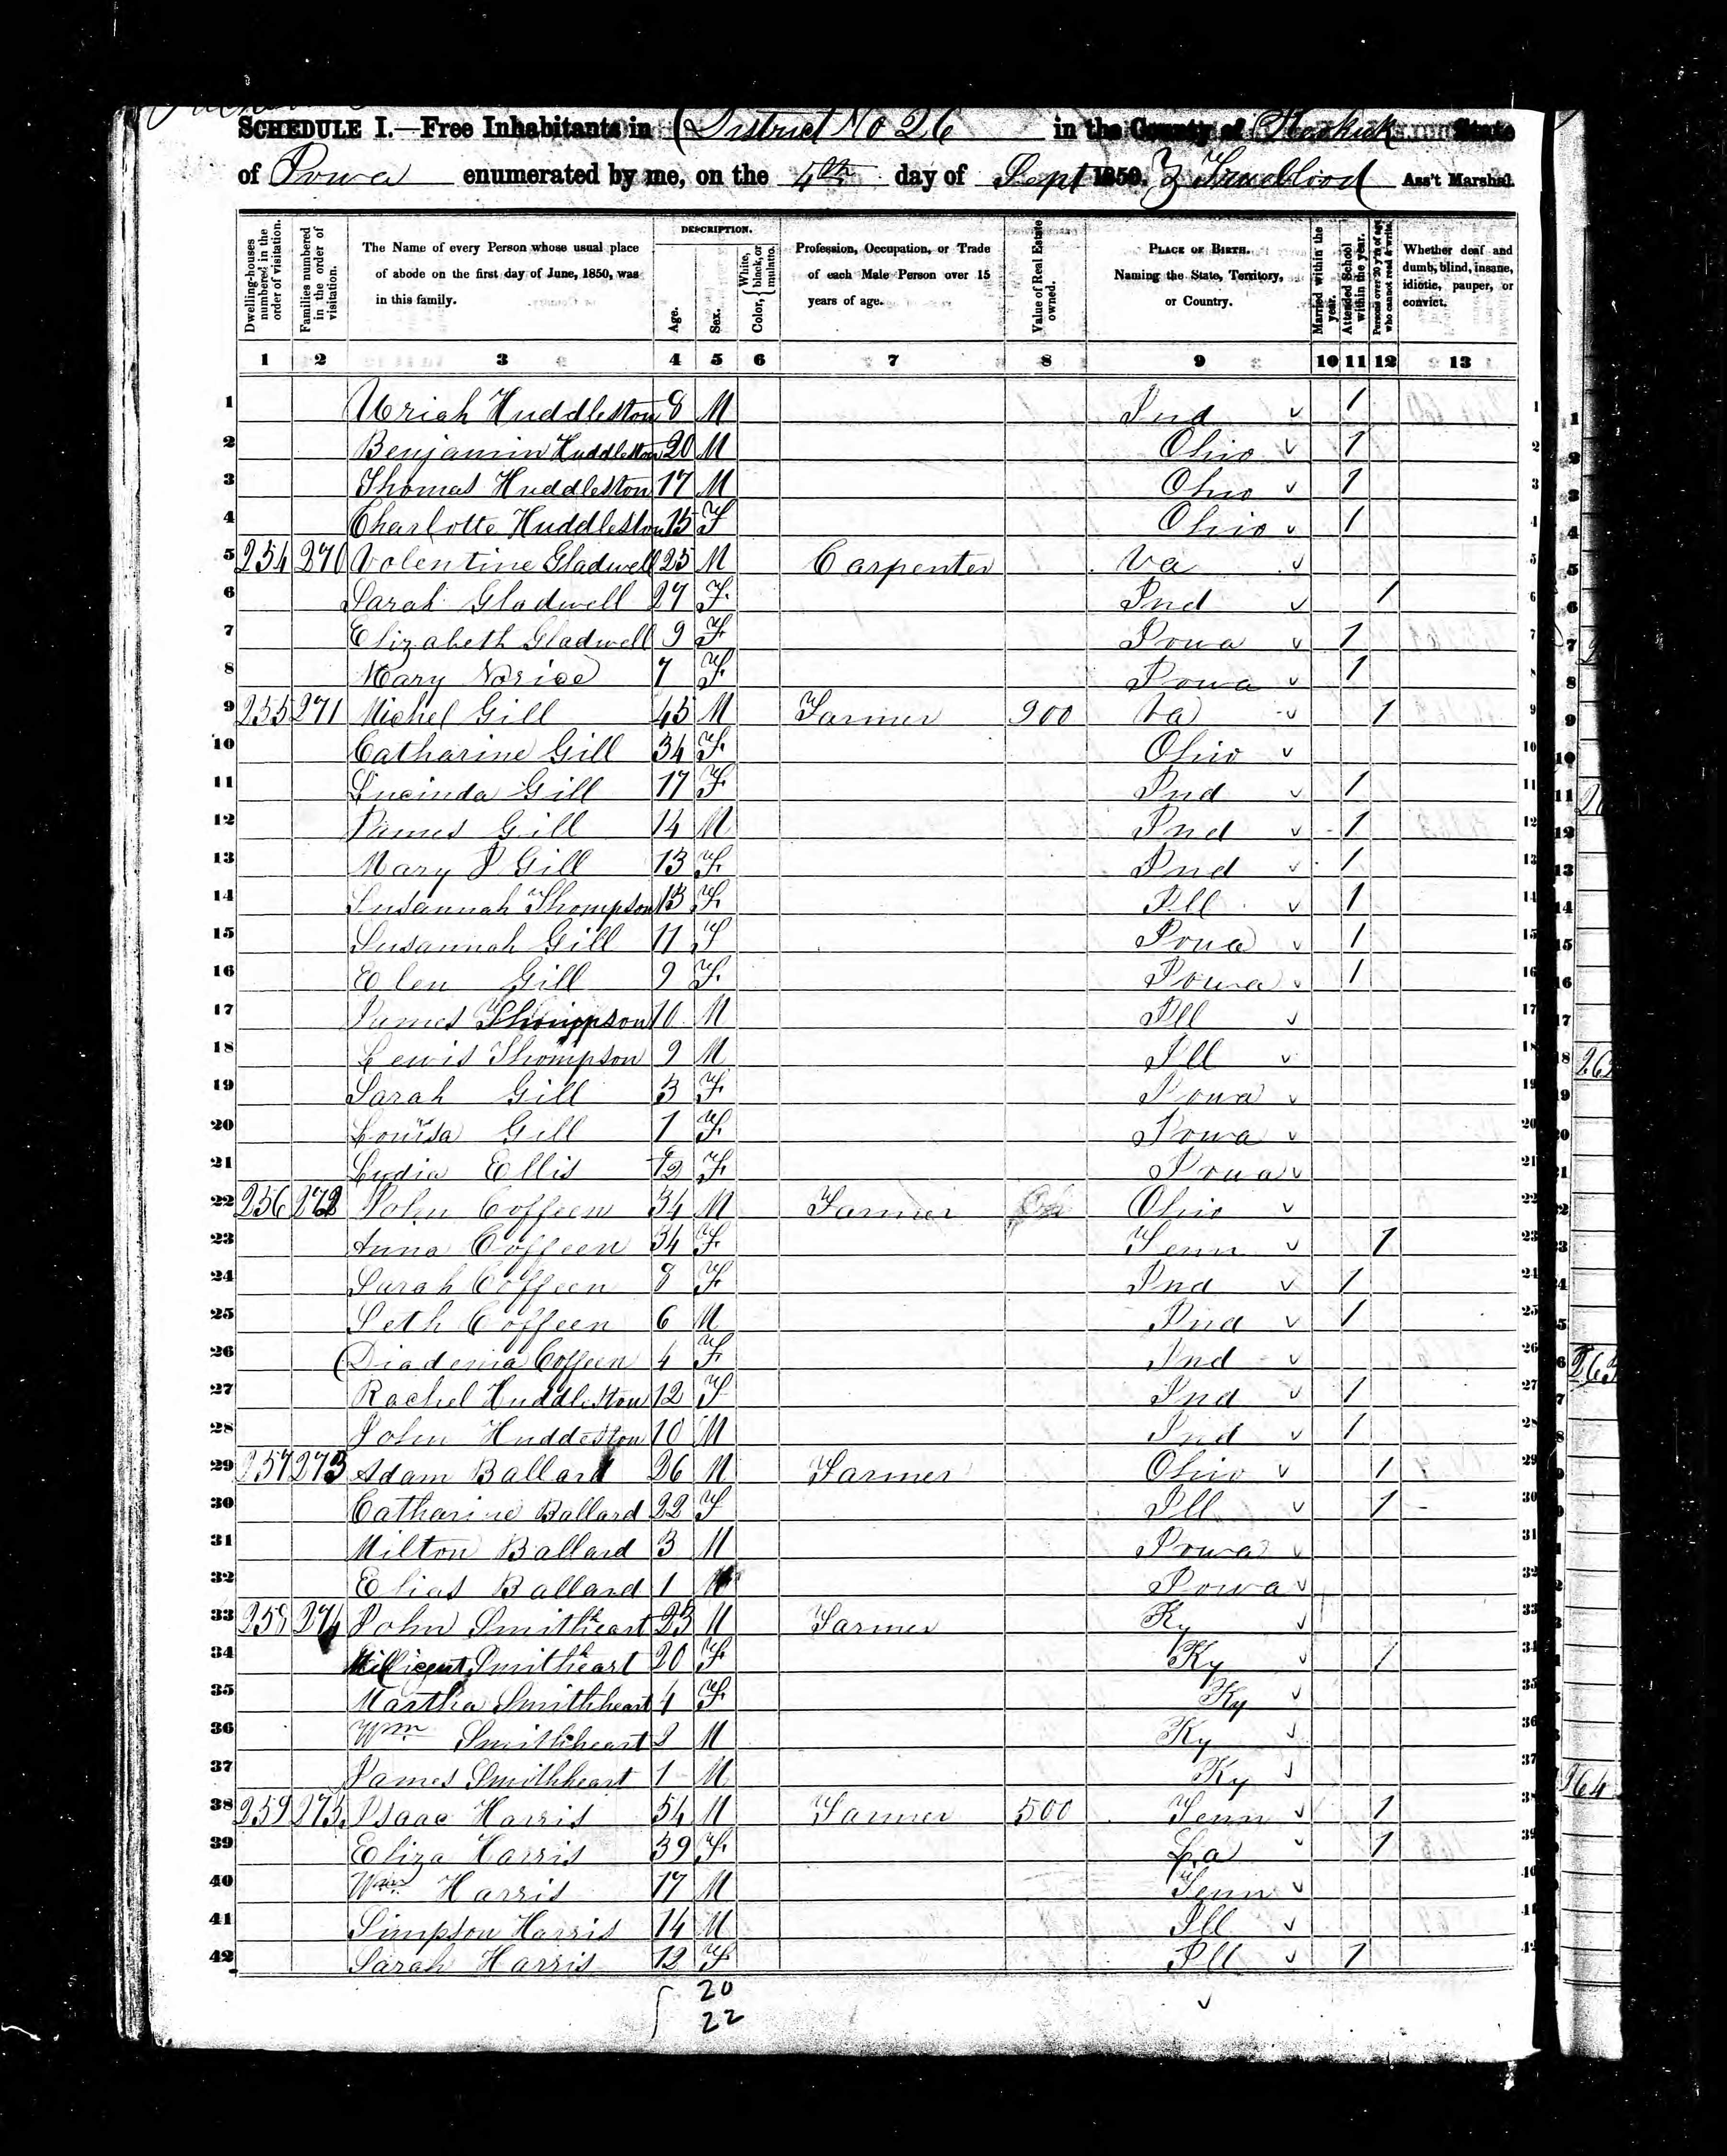 SCHEDULE I.—Free Inhabitants in District No 26 in the County of Keokuk State
of Iowa enumerated by me, on the 4th day of Sept 1850. Z Trueblood Ass't Marshal.
Dwelling-houses numbered in the order of visitation. Families numbered in the order of visitation. The Name of every Person whose usual place of abode on the first day of June, 1850, was in this family. DESCRIPTION. Age. Sex. Color, { White, black, or mulatto. Profession, Occupation, or Trade of each Male Person over 15 years of age. Value of Real Estate owned. PLACE OF BIRTH. Naming the State, Territory, or Country. Married within the year. Attended School within the year. Persons over 20 y'rs of age who cannot read & write. Whether deaf and dumb, blind, insane, idiotic, pauper, or convict.
1 2 3 4 5 6 7 8 9 10 11 12 13
1 Uriah Huddleston 8 M Ind 1 1
2 Benjamin Huddleston 20 M Ohio 1 2
3 Thomas Huddleston 17 M Ohio 1 3
4 Charlotte Huddleston 15 F Ohio 1 4
5 254 270 Volentine Gladwell 25 M Carpenter Va 5
6 Sarah Gladwell 27 F Ind 1 6
7 Elizabeth Gladwell 9 F Iowa 1 7
8 Mary 7 F Iowa 1 8
9 255 271 Michel Gill 45 M Farmer 900 Va 1 9
10 Catharine Gill 34 F Ohio 10
11 Lucinda Gill 17 F Ind 1 11
12 James Gill 14 M Ind 1 12
13 Mary J Gill 13 F Ind 1 13
14 Susannah Thompson 13 F Ill 1 14
15 Susannah Gill 11 F Iowa 1 15
16 Elen Gill 9 F Iowa 1 16
17 James Thompson 10 M Ill 17
18 Lewis Thompson 9 M Ill 18
19 Sarah Gill 3 F Iowa 19
20 Louisa Gill 1 F Iowa 20
21 Lydia Ellis F Iowa 21
22 256 272 John Coffeen 34 M Farmer Ohio 22
23 Anna Coffeen 34 F Tenn 1 23
24 Sarah Coffeen 8 F Ind 1 24
25 Seth Coffeen 6 M Ind 1 25
26 Diadema Coffeen 4 F Ind 26
27 Rachel Huddleston 12 F Ind 1 27
28 John Huddeston 10 M Ind 1 28
29 257 273 Adam Ballard 26 M Farmer Ohio 1 29
30 Catharine Ballard 22 F Ill 1 30
31 Milton Ballard 3 M Iowa 31
32 Elias Ballard 1 M Iowa 32
33 258 274 John Smithheart 23 M Farmer Ky 33
34 Millicent Smithheart 20 F Ky 1 34
35 Martha Smithheart 4 F Ky 35
36 Wm Smithheart 2 M Ky 36
37 James Smithheart 1 M Ky 37
38 259 275 Isaac Harris 54 M Farmer 500 Tenn 1 38
39 Eliza Harris 39 F La 1 39
40 Wm Harris 17 M Tenn 40
41 Simpson Harris 14 M Ill 41
42 Sarah Harris 12 F Ill 1 42
20
22